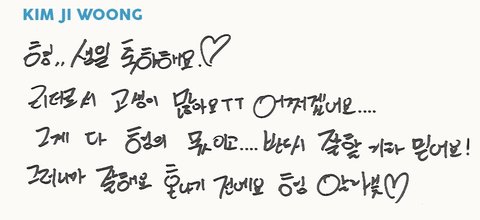 KIM JI WOONG
형,, 생일 축하해요.♡
리더로서 고생이 많아요ㅜㅜ 어쩌겠어요.....
그게 다 형의 몫이고.... 반드시 잘할 거라 믿어요!
그러니까 잘해요 혼나기 전에요 형 알라븅♡